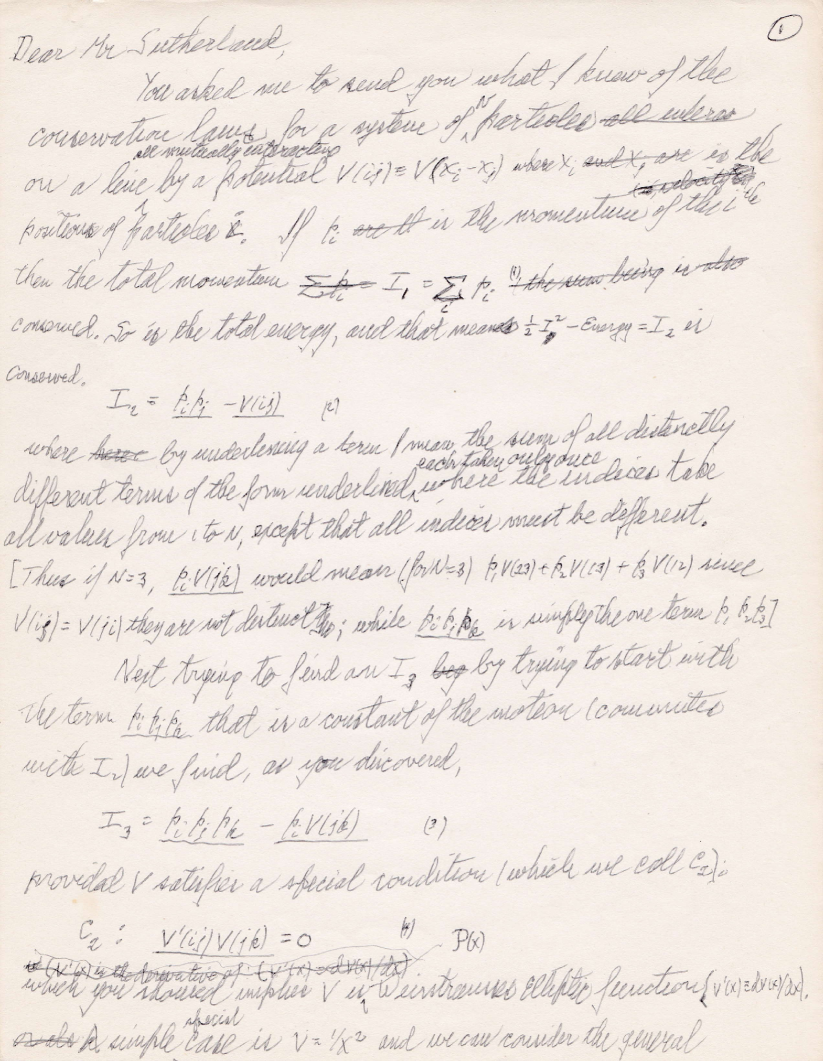 1
Dear Mr Sutherland,
You asked me to send you what I know of the
conservation laws for a system of N particles all interac
on a line all mutually interacting by a potential V(ij) ≡ V(xi - xj) where xi and xj are is the
positions of particles i. If pi are th is the momentum of the i th
then the total momentum Σ pi = I1 = Σi pi (1) the sum being is also
conserved. So is the total energy, and that means ½ I1² - Energy = I2 is
conserved.
I2 = pipj - V(ij) (2)
where here by underlining a term I mean the sum of all distinctly
different terms of the form underlined, each taken only once where the indices take
all values from 1 to N, except that all indices must be different.
[Thus if N=3, piV(jk) would mean (for N=3) p1V(23) + p2V(13) + p3V(12) since
V(ij) = V(ji) they are not distinct; while pipjpk is simply the one term p1p2p3]
Next trying to find an I3 beg by trying to start with
the term pipjpk that is a constant of the motion (commutes
with I2) we find, as you discovered,
I3 = pipjpk - piV(jk) (3)
provided V satisfies a special condition (which we call C2):
C2: V'(ij)V(jk) = 0 (4) P(x)
(V'(x) is the derivative of (V'(x) = dV(x)/dx)
which you showed implies V is Weirstrauses elliptic function (V'(x) ≡ dV(x)/dx).
A simple special case is V = 1/x² and we can consider the general